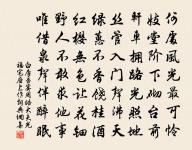 何處風光最可憐
妓堂階下砌臺前
軒車擁路光照地
絲管入門聲沸天
綠蕙不香饒桂酒
紅櫻無色讓花鈿
野人不敢求他事
唯借泉聲伴醉眠
白居易宴周皓大夫光
福宅座上作詞典網書